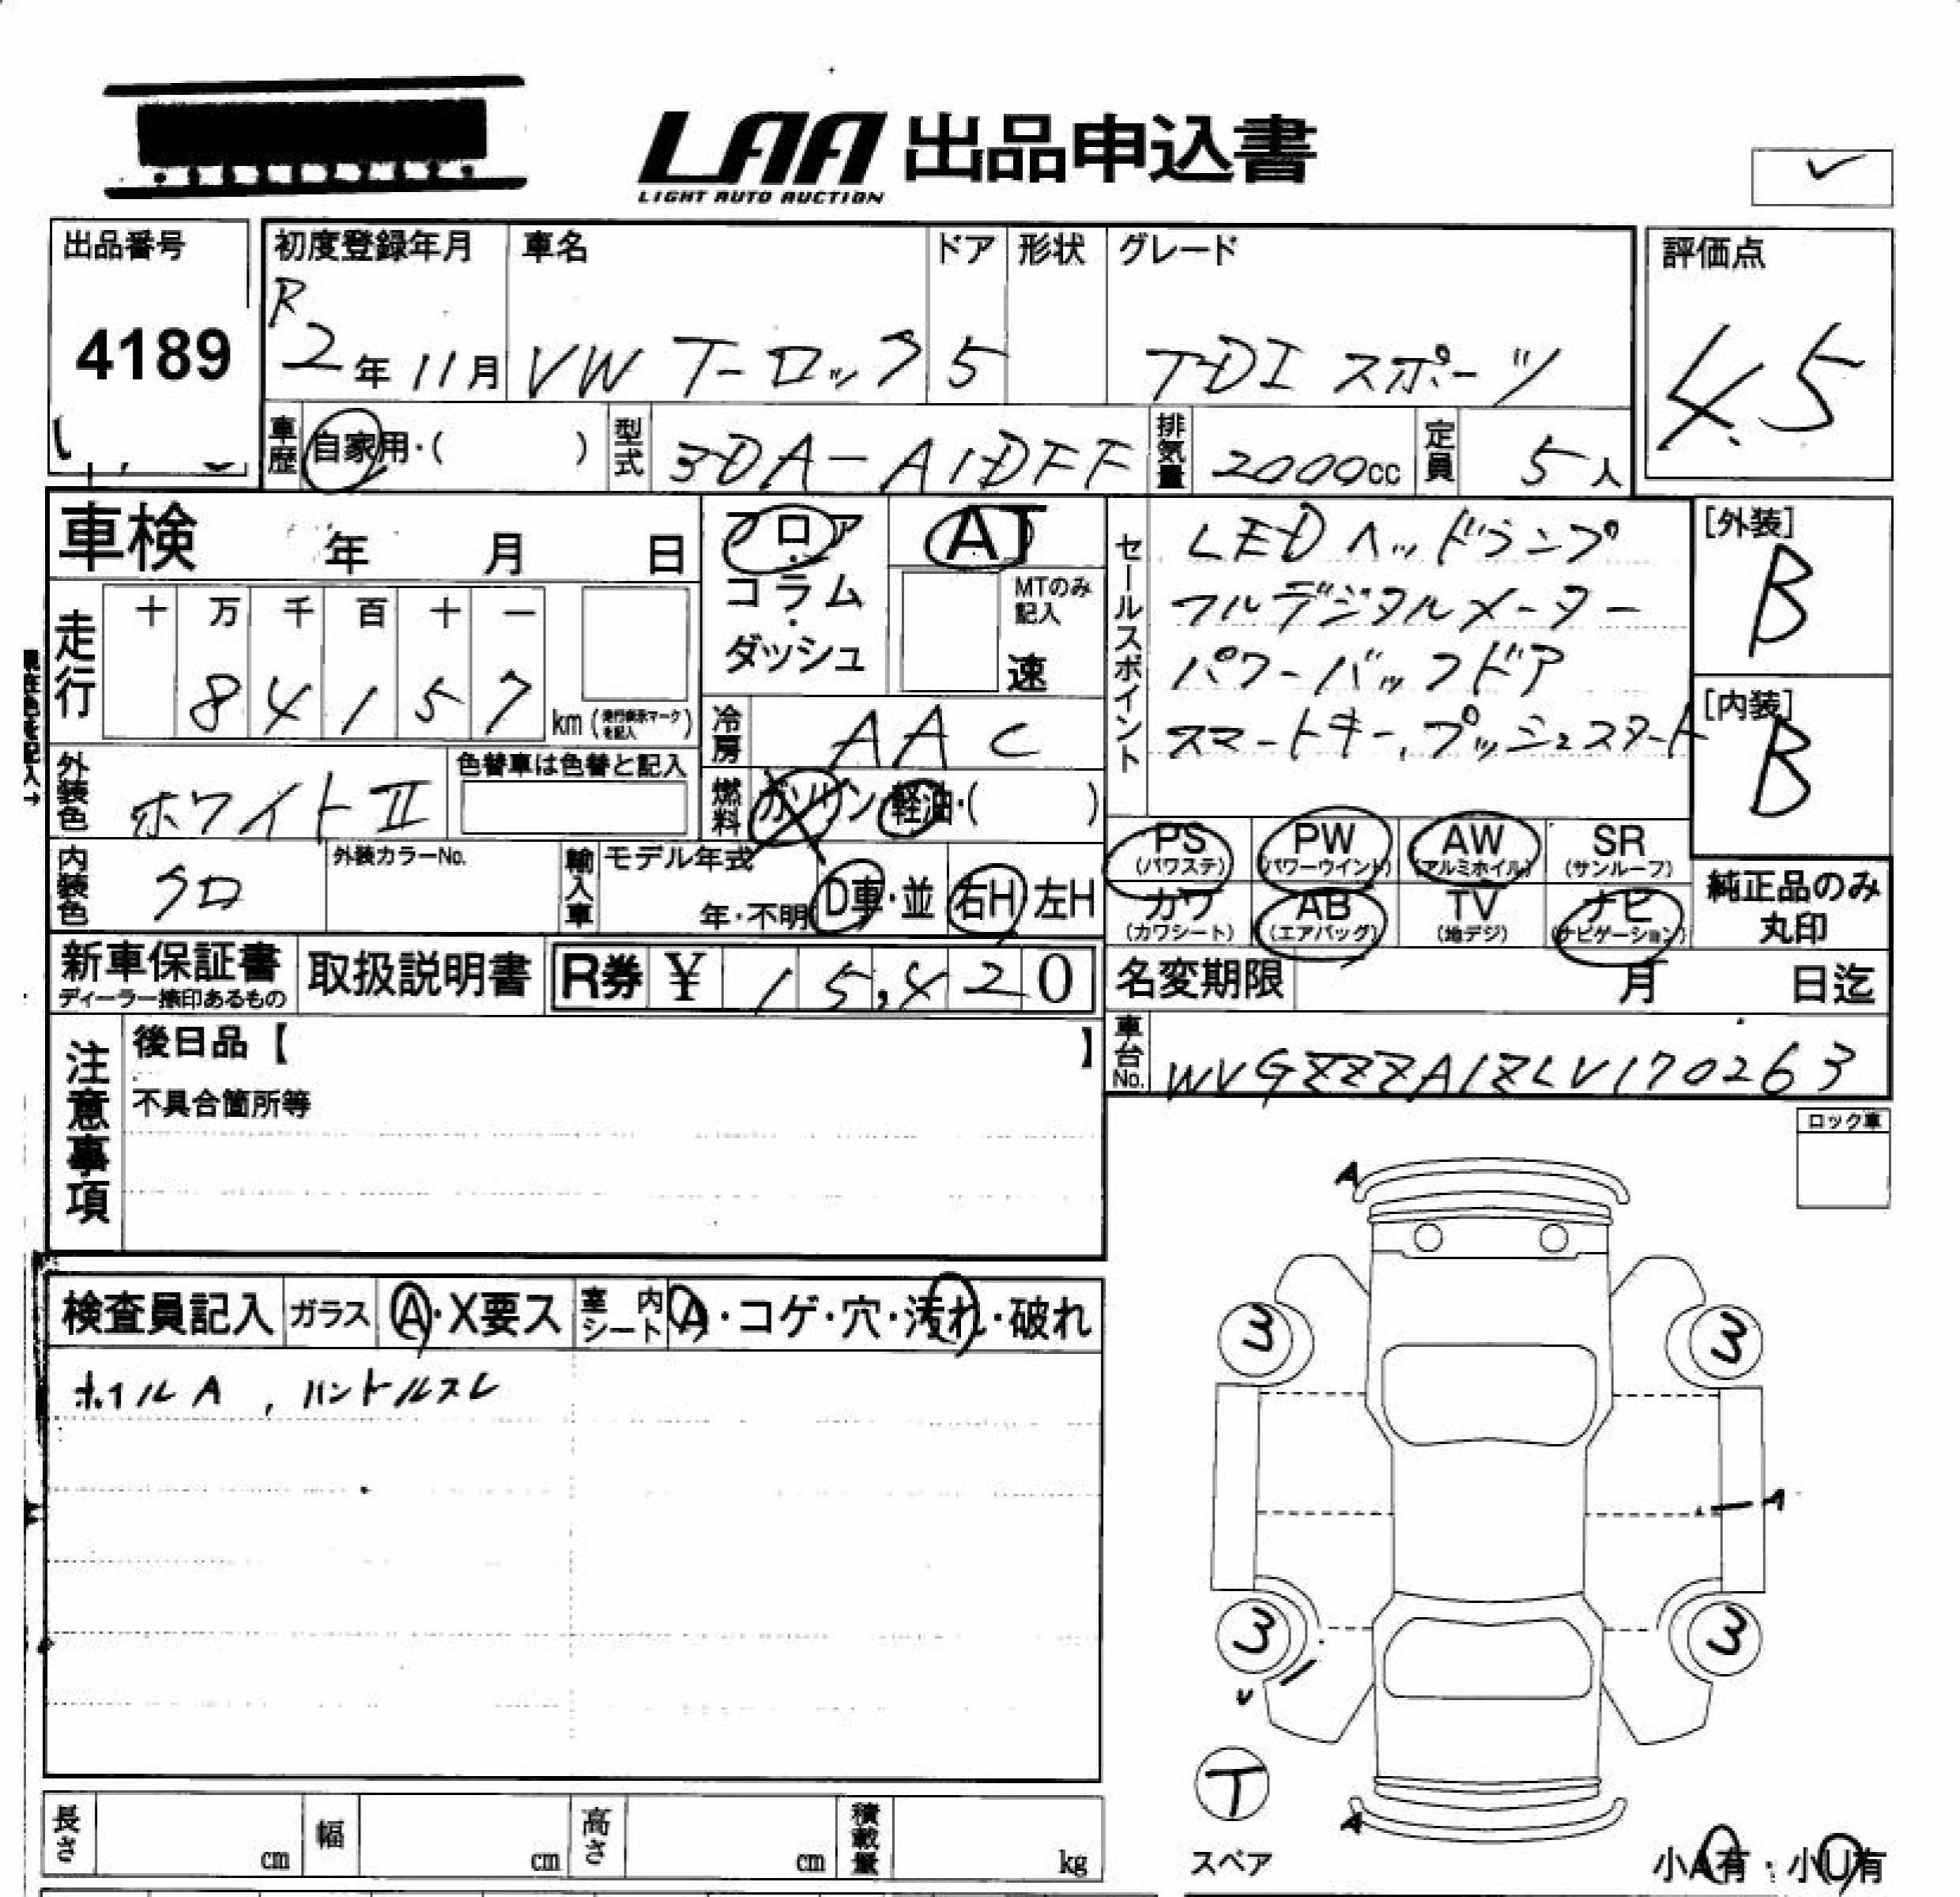 LAA 出品申込書
LIGHT AUTO AUCTION
出品番号
4189
初度登録年月
R2年11月
車名
VW T-ロック
ドア
5
形状
グレード
TDI スポーツ
評価点
4.5
車歴 自家用・( )
型式 3DA-A1DFF
排気量 2000cc
定員 5人
車検 年 月 日
フロア・コラム・ダッシュ
AT
MTのみ記入
速
走行
十 万 千 百 十 一
8 4 1 5 7
km (走行表示マークを記入)
冷房 AAC
セールスポイント
LEDヘッドランプ
フルデジタルメーター
パワーバックドア
スマートキー,プッシュスタート
[外装]
B
[内装]
B
外装色 ホワイトII
色替車は色替と記入
燃料 ガソリン 軽油・( )
内装色 クロ
外装カラーNo.
輸入車 モデル年式
年・不明 D車・並 右H 左H
PS (パワステ)
PW (パワーウインド)
AW (アルミホイル)
SR (サンルーフ)
カワ (カワシート)
AB (エアバッグ)
TV (地デジ)
ナビ (ナビゲーション)
純正品のみ丸印
新車保証書
ディーラー捺印あるもの
取扱説明書
R券 ¥ 15,420
名変期限 月 日迄
車台No. WVGZZZA1ZLV170263
注意事項
後日品【 】
不具合箇所等
ロック車
検査員記入 ガラス A・X要ス 室内シート A・コゲ・穴・汚れ・破れ
ホイルA , ハンドルスレ
A
3 3
A
3 3
U
T
スペア
A
小A有・小U有
長さ cm 幅 cm 高さ cm 積載量 kg